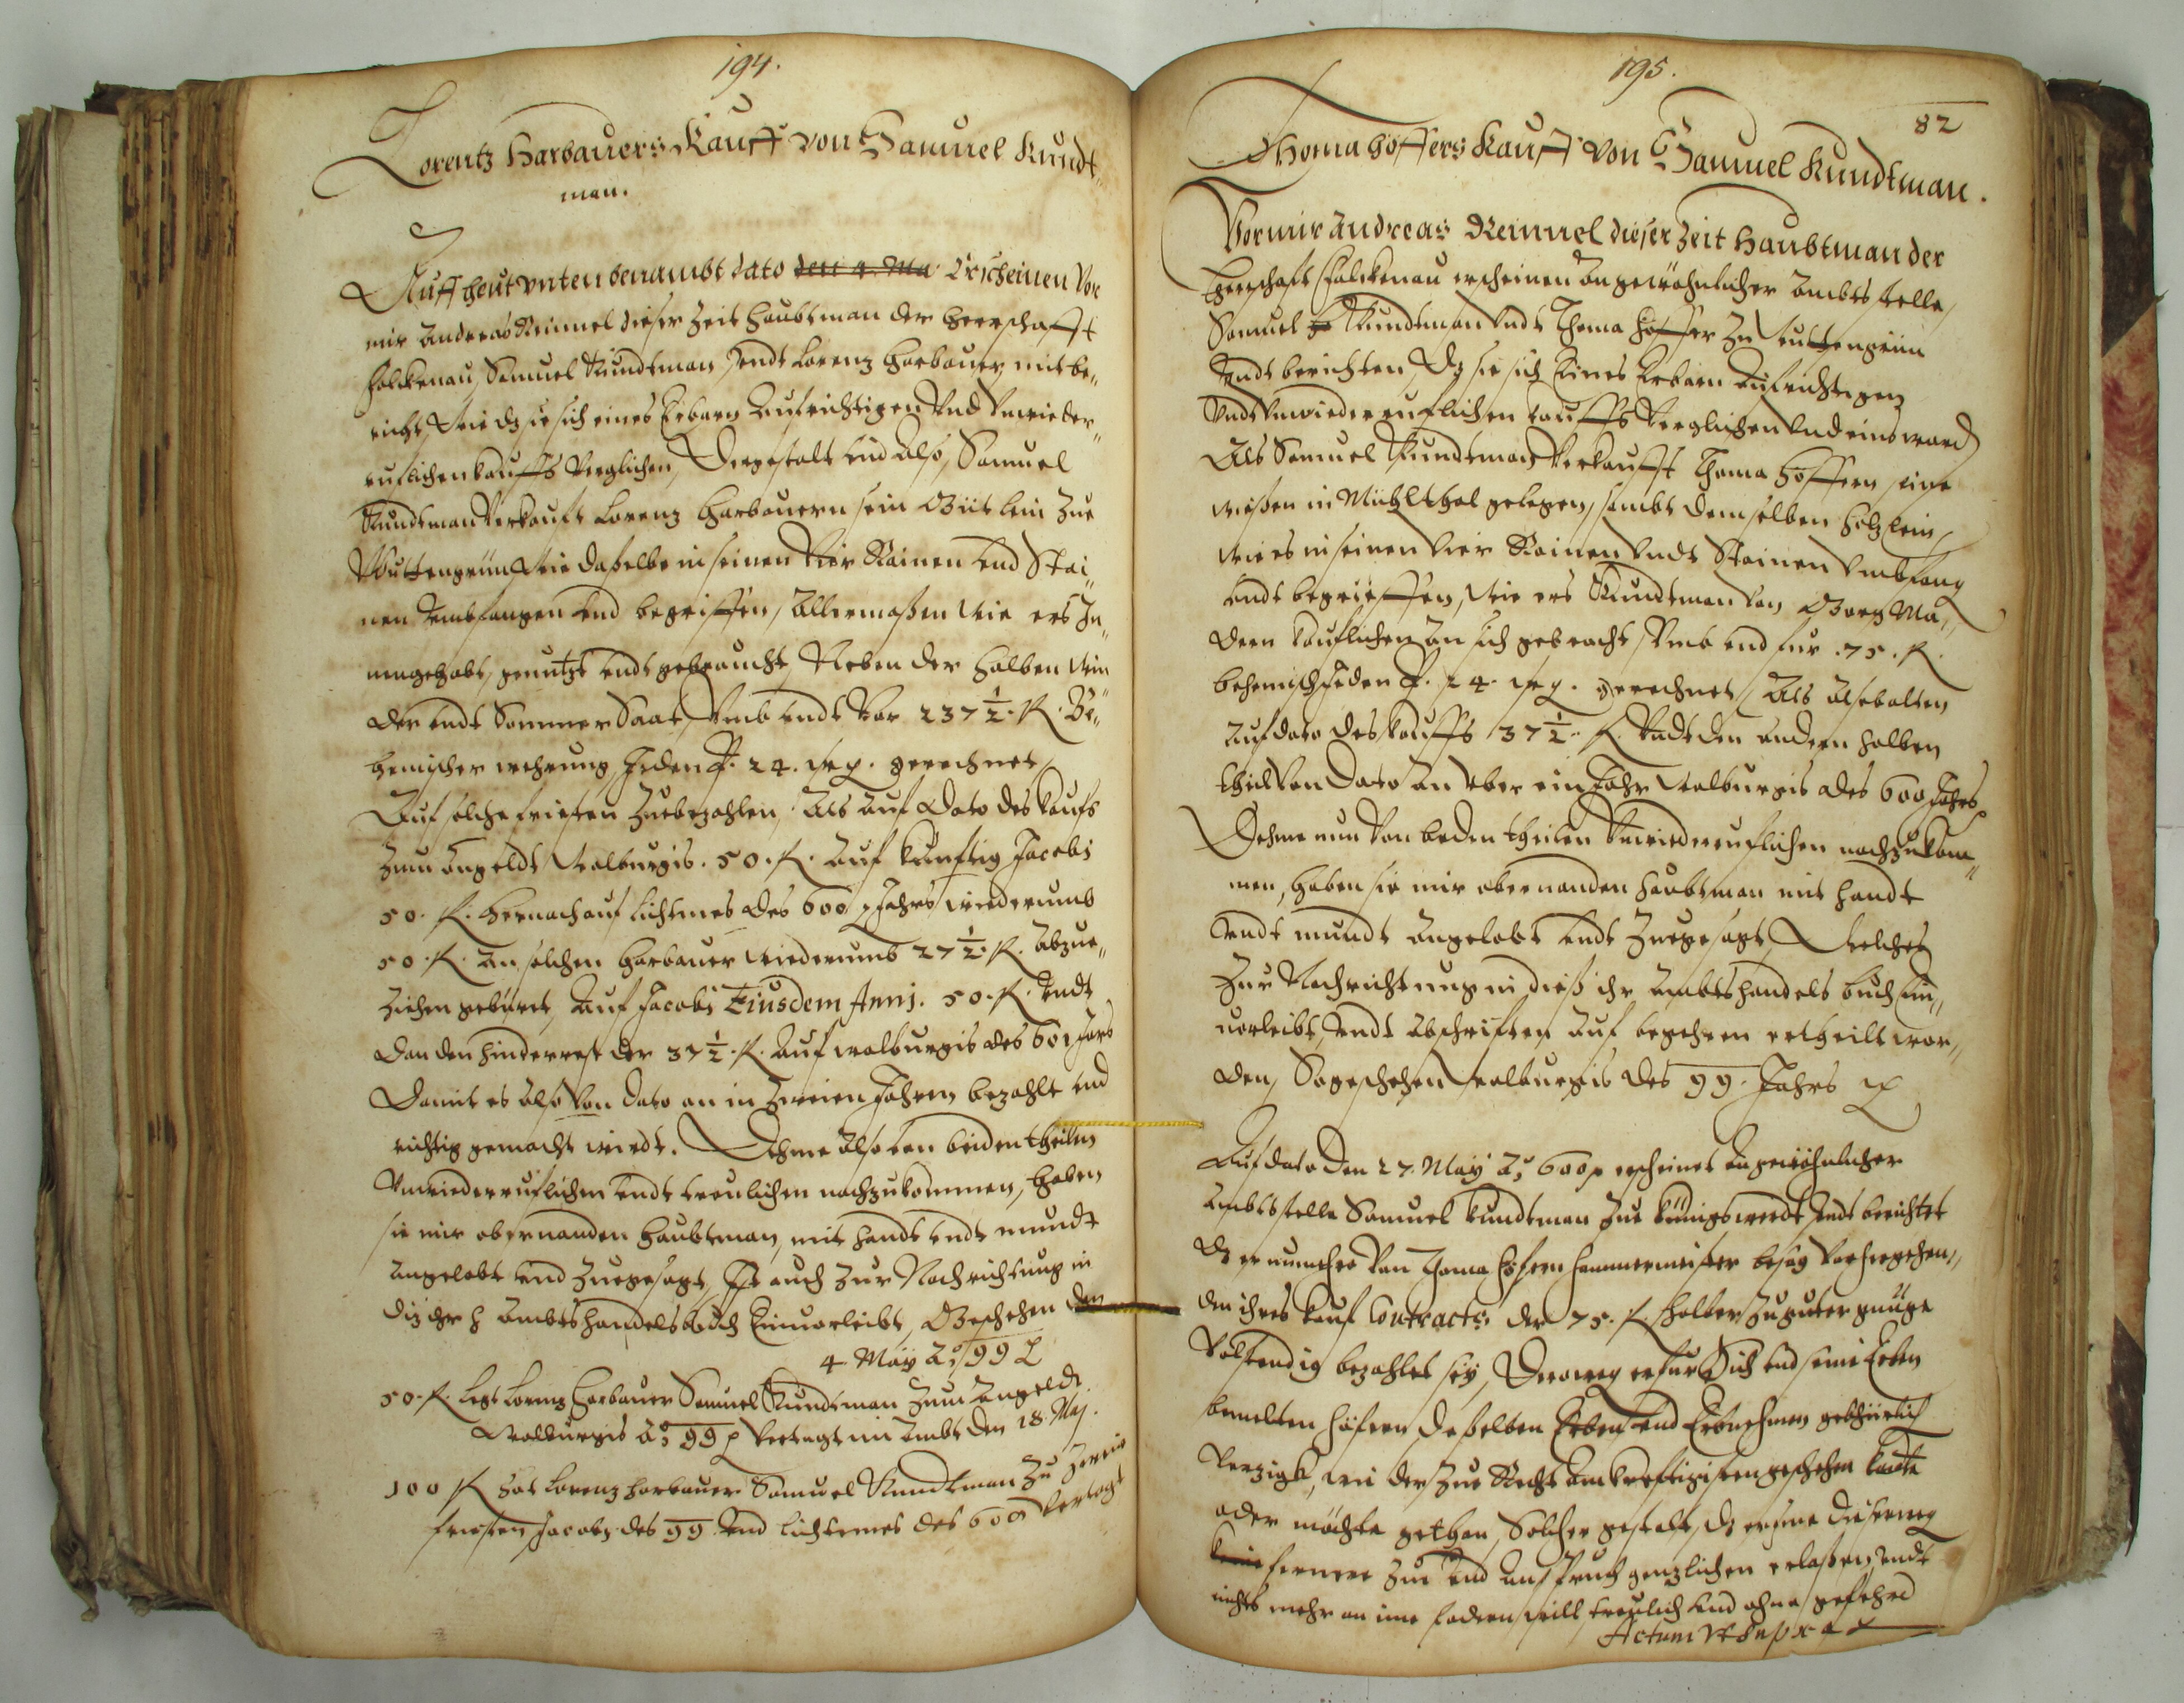 194.
Lorentz Harbauers Kauff von Samuel Kundt„
man.
Auff heut vnten benambt dato den 4. Ma Erscheinen Vor
mir Andreas Reinnel dieser Zeit Haubtman der Herrschafft
Falckenau, Samuel Kundtman vndt Lorenz Harbauer, mit be„
richt, Wie dz sie sich eines Erbarn Aufrichtigen Vnd Vnwieder„
ruflichen Kauffs Verglichen, Dergestalt vnd Also, Samuel
Kundtman Verkauft Lorenz Harbauern sein Güttlein Zue
Wuttengrün, Wie daßelbe in seinen Vier Rainen vnd Stei„
nen Vmbfangen vnd begriffen, Allermaßen Wie ers In„
nengehabt, genutzt vndt gebraucht, Neben der Halben Win
der vndt Sommer Saat, Vmb vndt Vor 237½. R. Be„
hemischer wehrung, Jeden R. 24. gerechnet,
Auf solche fristen Zuebezahlen, Als Auf Dato des Kaufs
Zum Angeldt Walburgis. 50. R. Auf Künftig Jacobi
50. R. Hernach auf Lichtmes des 600 Jahrs wiederumb
50. R. An solchen Harbauer wiederumb 27½. R. Abzue„
Ziehen gebürt, Auf Jacobi Eiusdem Anni. 50. R. Vndt
Dan den Hinderrest der 37½. R. Auf Walburgis des 601 Jars
Damit es Also Von Dato an in Zweien Jahren bezahlt vnd
richtig gemacht wirdt. Deme Also Von beiden theilen
Vnwiederruflichen vndt treulichen nachzukommen, Haben
sie mir obernanden Haubtman, mit Handt vndt mundt
Angelobt vnd Zuegesagt, Ist auch Zur Nachrichtung in
diz Ambtshandelsbuch Einuorleibt, Geschehen den
4. May Ao. 99
50. R. Legt Lorenz Harbauer Samuel Kundtman Zum Angeldt
Walburgis Ao. 99 Vertagt im Ambt den 18. Maj.
100 R Hat Lorenz Harbauer Samuel Kundtman Zu Zweien
fristen Jacobj des 99 Vnd Lichtmes des 600 Vertagt
195.
82
Thoma Höffers Kauff von Samuel Kundtman.
Vor mir Andreas Reinnel dieser Zeit Haubtman der
Herrschaft Falckenau erscheinen An gewöhnlicher Ambtsstelle,
Samuel Kundtman Vndt Thoma Höffer Zu
Vndt berichten, Dz sie sich Eines Erbarn Aufrichtigen
Vndt Vnwiederruflichen Kauffs Verglichen Vnd eins ward
Als Samuel Kundtman Verkaufft Thoma Höffern eine
Wießen in Mühlthal gelegen, sambt demselben Holzlein,
Wie es in seinen Vier Rainen Vndt Steinen Vmbfang
Vndt begrieffen, Wie ers Kundtman Von Georg Ma„
dern Käuflichen An sich gebracht, Vmb vnd für .75. R.
behemisch Jeden R. 24. gerechnet, Als Alsobalten
Auf dato des Kauffs 37½. R. Vndt den Andern Halben
theil Von Dato An vber ein Jahr Walburgis des 600 Jahrs
Deme nun Von beden theilen Vnwiederruflichen nachzukom„
men, Haben sie mir obernanden Haubtman mit Handt
Vndt mundt Angelobt Vndt Zuegesagt, Welches
Zur Nachrichtung in dieß Ambtshandels buch Ein„
uorleibt, Vndt Abschriften Auf begehren ertheilt wor„
den, So geschehen Walburgis des 99. Jahrs
Auf dato den 27. May Ao. 600 erscheinet An gewöhnlicher
Ambtsstelle Samuel Kundtman Zue Königswerdt Vndt berichtet
Dz er nunmehr Von Thoma Höfern Hammermeister besag Vorhergehen„
den ihres Kauf Contracts der 75. R. Halber Zu guter gnüge
Volstendig bezahlet sey, Derweg er für Sich vnd seine Erben
bemelten Höfern, deßelben Erben vnd Erbnehmen gebührlich
Verzigk, wie der Zue Recht Am kreftigisten geschehen könte
oder möchte gethan, Solcher gestalt, dz er ihme dieserweg
keine fernere Zue vnd Anspruch genzlichen erlaßen, vndt
nichts mehr an ime fodern will treulich vnd ohne gefehrd
Actum vt supra